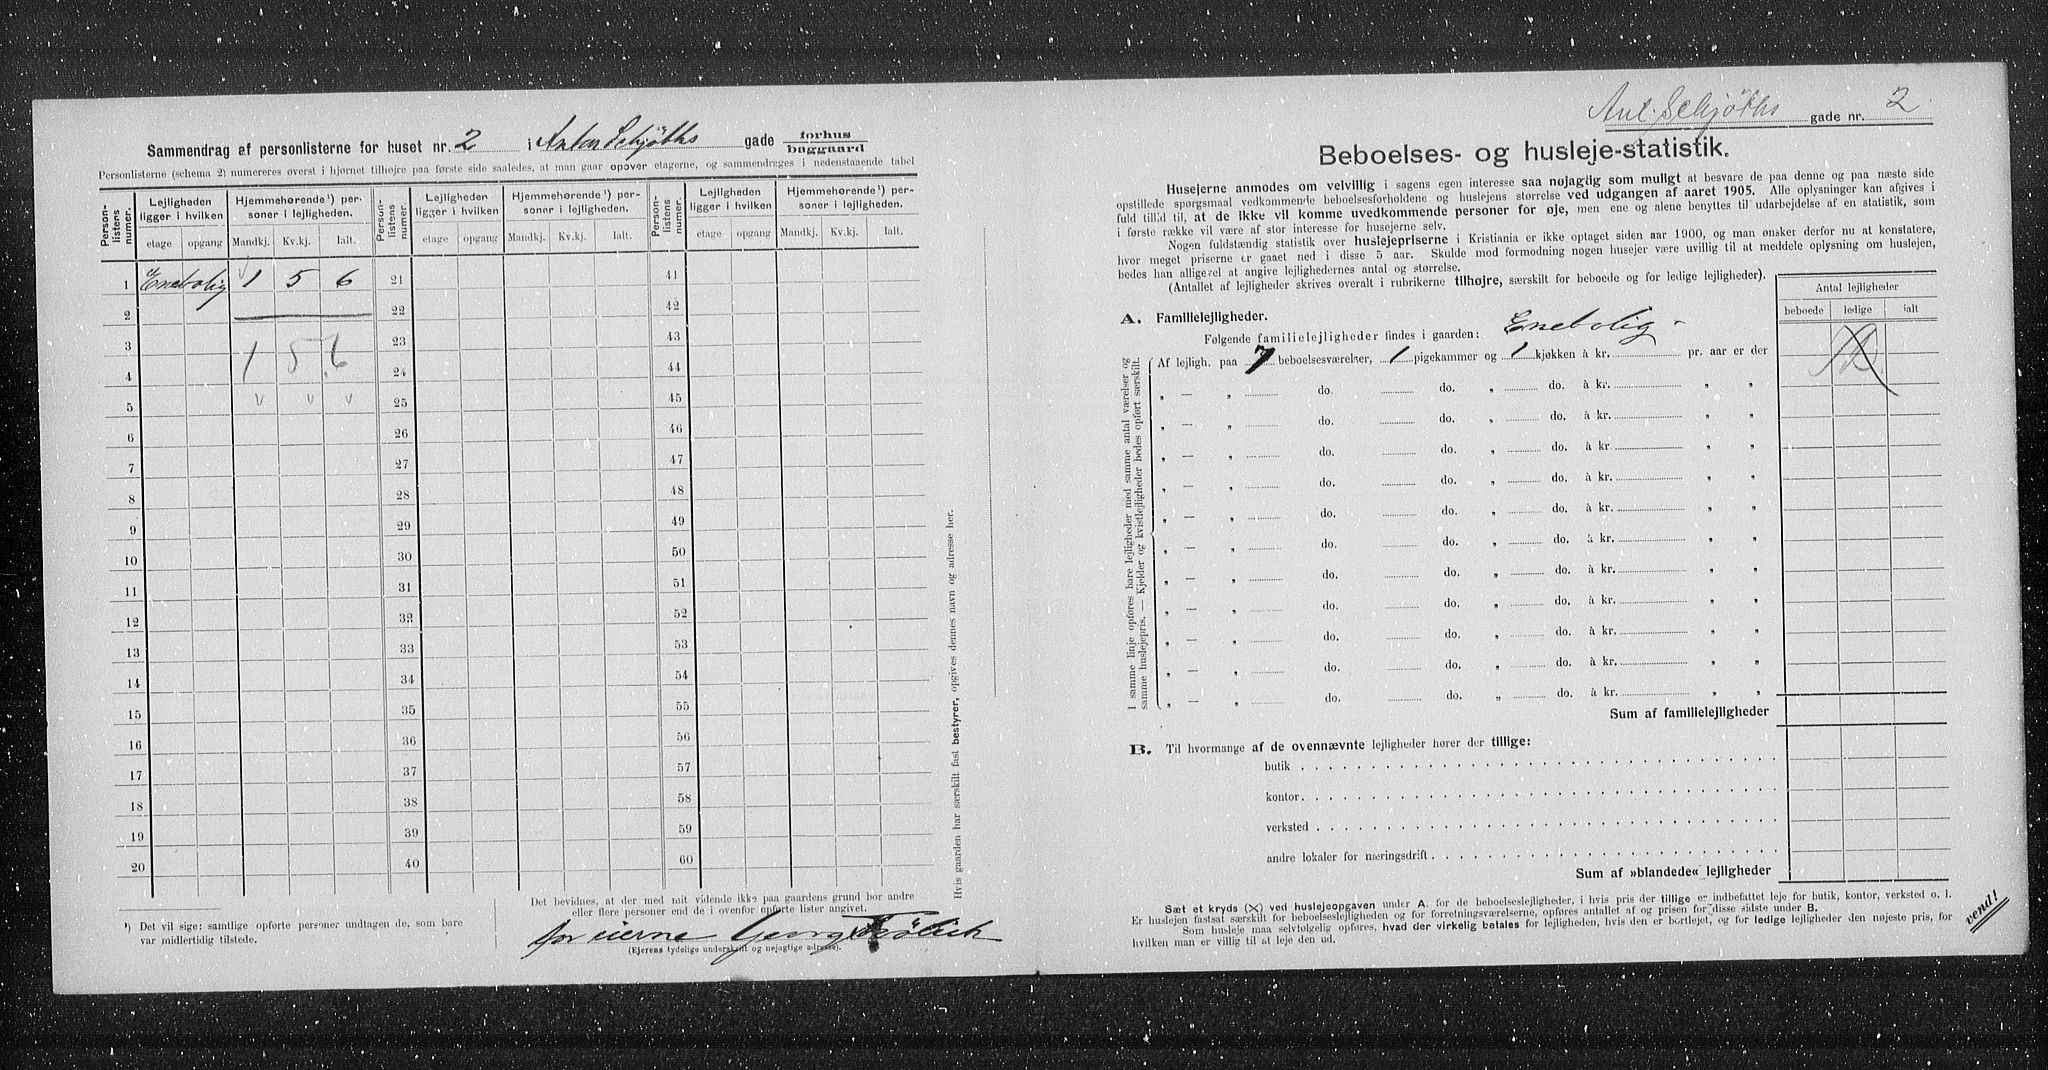 Sammendrag af personlisterne for huset nr. 2 i Anton Schjøths gade forhus
baggaard
Personlisterne (schema 2) numereres øverst i hjørnet tilhøjre paa første side saaledes, at man gaar opover etagerne, og sammendrages i nedenstaaende tabel
Person-listens numer. Lejligheden ligger i hvilken Hjemmehørende¹) personer i lejligheden. Person-listens numer. Lejligheden ligger i hvilken Hjemmehørende¹) personer i lejligheden. Person-listens numer. Lejligheden ligger i hvilken Hjemmehørende¹) personer i lejligheden.
etage opgang Mandkj. Kv.kj. Ialt. etage opgang Mandkj. Kv.kj. Ialt. etage opgang Mandkj. Kv.kj. Ialt.
1 Enebolig 1 5 6 21 41
2 22 42
3 1 5 6 23 43
4 24 44
5 25 45
6 26 46
7 27 47
8 28 48
9 29 49
10 30 50
11 31 51
12 32 52
13 33 53
14 34 54
15 35 55
16 36 56
17 37 57
18 38 58
19 39 59
20 40 60
¹) Det vil sige: samtlige opførte personer undtagen de, som bare
var midlertidig tilstede.
Det bevidnes, at der med mit vidende ikke paa gaardens grund bor andre
eller flere personer end de i ovenfor opførte lister angivet.
for eierne Georg Frölich
(Ejerens tydelige underskrift og nøjagtige adresse).
Hvis gaarden har særskilt fast bestyrer, opgives dennes navn og adresse her.
Ant. Schjøths gade nr. 2.
Beboelses- og husleje-statistik.
Husejerne anmodes om velvillig i sagens egen interesse saa nøjagtig som muligt at besvare de paa denne og paa næste side
opstillede spørgsmaal vedkommende beboelsesforholdene og huslejens størrelse ved udgangen af aaret 1905. Alle oplysninger kan afgives i
fuld tillid til, at de ikke vil komme uvedkommende personer for øje, men ene og alene benyttes til udarbejdelse af en statistik, som
i første række vil være af stor interesse for husejerne selv.
Nogen fuldstændig statistik over huslejepriserne i Kristiania er ikke optaget siden aar 1900, og man ønsker derfor nu at konstatere,
hvor meget priserne er gaaet ned i disse 5 aar. Skulde mod formodning nogen husejer være uvillig til at meddele oplysning om huslejen,
bedes han alligevel at angive lejlighedernes antal og størrelse.
(Antallet af lejligheder skrives overalt i rubrikerne tilhøjre, særskilt for beboede og for ledige lejligheder).
Antal lejligheder
beboede ledige ialt
A. Familielejligheder.
Følgende familielejligheder findes i gaarden: Enebolig
I samme linje opføres bare lejligheder med samme antal værelser og
samme huslejepris. — Kjelder og kvistlejligheder bedes opført særskilt.
Af lejligh. paa 7 beboelsesværelser, 1 pigekammer og 1 kjøkken à kr. pr. aar er der
„ — „ do. do. „ do. à kr. „ „
„ — „ do. do. „ do. à kr. „ „
„ — „ do. do. „ do. à kr. „ „
„ — „ do. do. „ do. à kr. „ „
„ — „ do. do. „ do. à kr. „ „
„ — „ do. do. „ do. à kr. „ „
„ — „ do. do. „ do. à kr. „ „
„ — „ do. do. „ do. à kr. „ „
„ — „ do. do. „ do. à kr. „ „
„ — „ do. do. „ do. à kr. „ „
„ — „ do. do. „ do. à kr. „ „
Sum af familielejligheder
B. Til hvormange af de ovennævnte lejligheder hører der tillige:
butik
kontor
verksted
andre lokaler for næringsdrift
Sum af »blandede« lejligheder
Sæt et kryds (×) ved huslejeopgaven under A. for de beboelseslejligheder, i hvis pris der tillige er indbefattet leje for butik, kontor, verksted o. l.
Er huslejen fastsat særskilt for beboelseslejligheden og for forretningsværelserne, opføres antallet af og prisen for disse sidste under B.
Som husleje maa selvfølgelig opføres, hvad der virkelig betales for lejligheden, hvis den er bortlejet, og for ledige lejligheder den nøjeste pris, for
hvilken man er villig til at leje den ud.
vend!